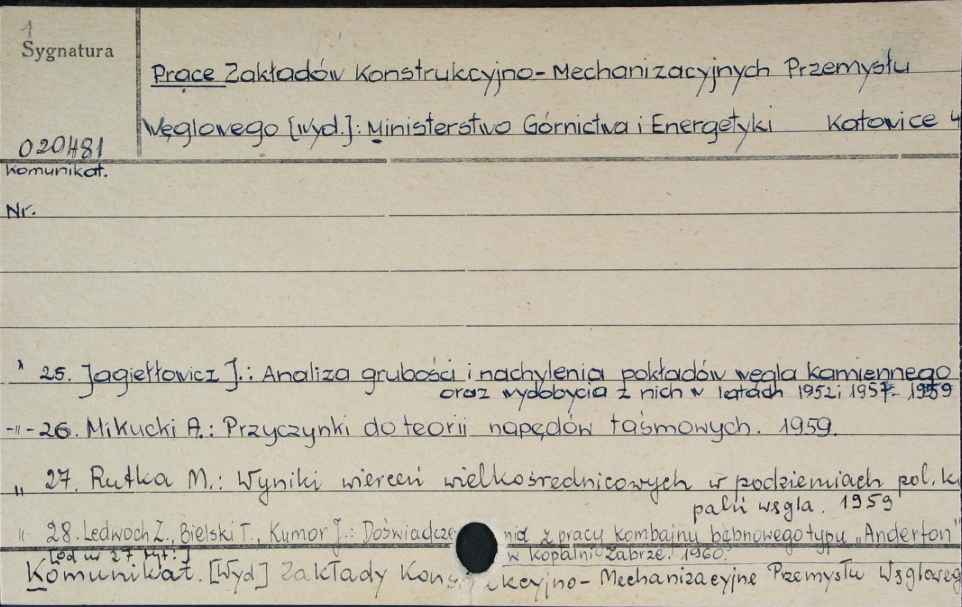 1
Sygnatura
Prace Zakładów Konstrukcyjno-Mechanizacyjnych Przemysłu
Węglowego [Wyd.]: Ministerstwo Górnictwa i Energetyki Katowice 4
020481
Komunikat.
Nr.
25. Jagiełłowicz J.: Analiza grubości i nachylenia pokładów węgla kamiennego
oraz wydobycia z nich w latach 1952 i 1957. 1959
-"- 26. Mikucki A.: Przyczynki do teorii napędów taśmowych. 1959.
" 27. Rutka M.: Wyniki wierceń wielkośrednicowych w podziemiach pol. ko
palń węgla. 1959
" 28. Ledwoch Z., Bielski T., Kumor J.: Doświadcze nia z pracy kombajnu bębnowego typu "Anderton"
w kopalni Zabrze. 1960.
[od nr 27 tyt:]
Komunikat. [Wyd] Zakłady Kons kcyjno-Mechanizacyjne Przemysłu Węgloweg